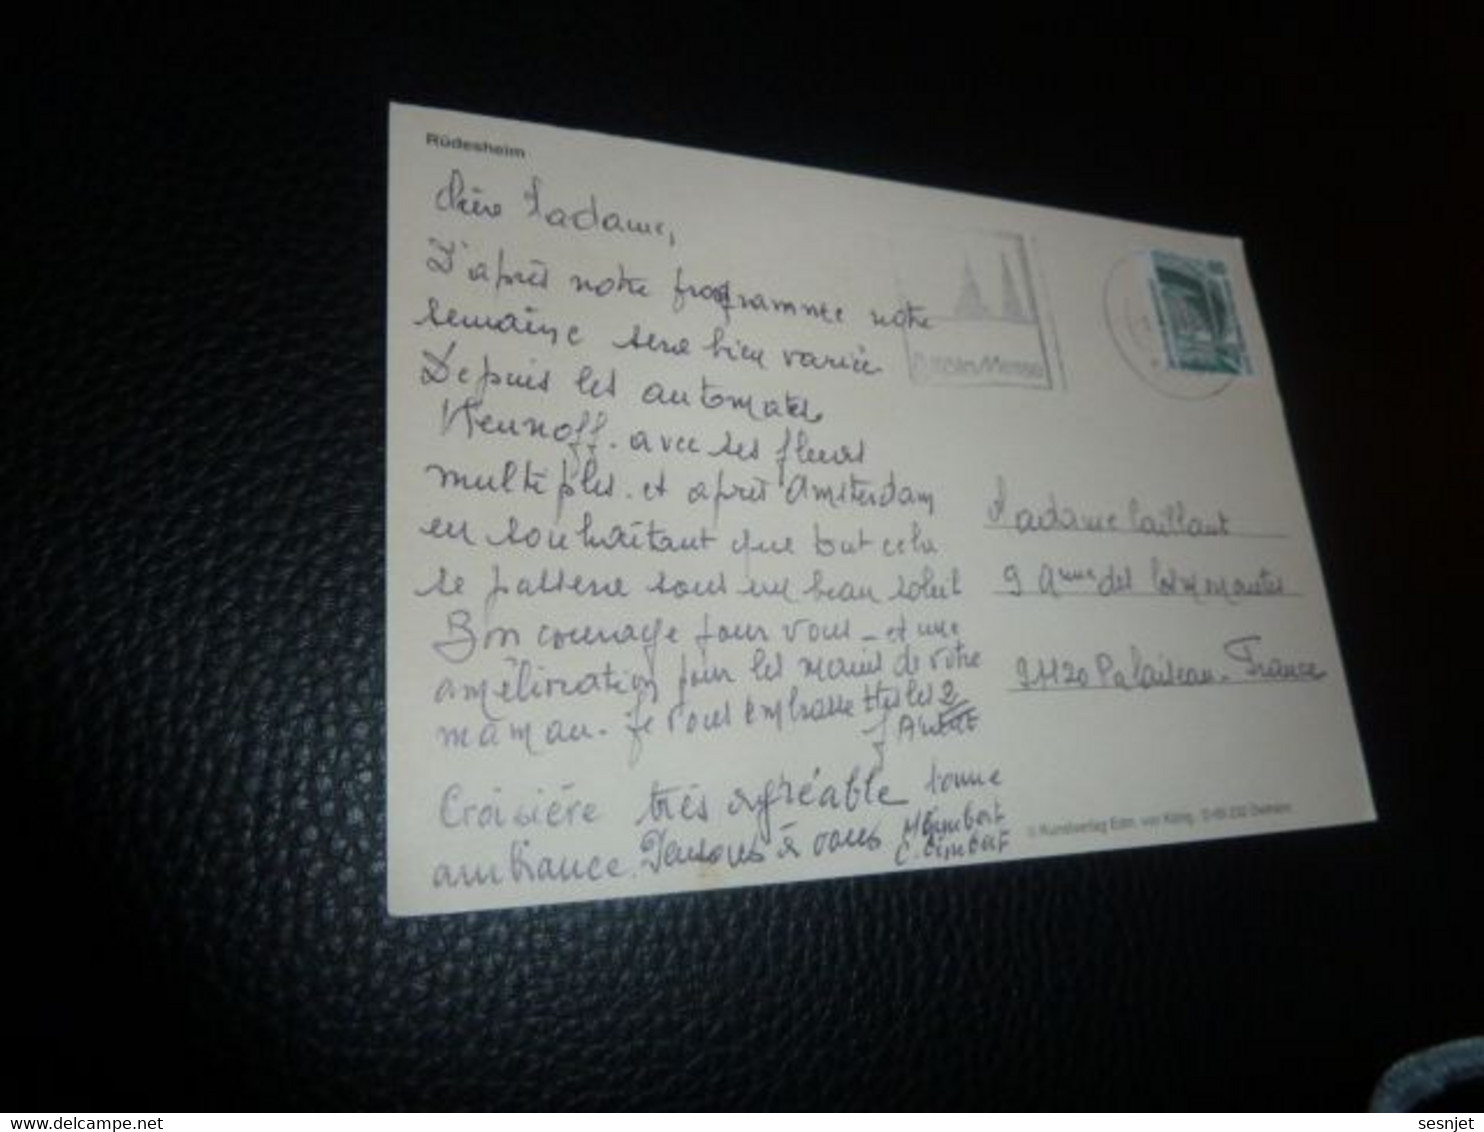 Rüdesheim
Chère Madame,
D'après notre programme notre
semaine sera bien variée
Depuis les automates
avec ses fleurs
multiples. et après Amsterdam
en souhaitant que tout cela
se passera sous un beau soleil
Bon courage pour vous - et une
amélioration pour les mains de votre
maman. Je vous embrasse les 2
Croisière très agréable bonne
ambiance. Pensons à vous M Gimbert
C. Gimbert
Köln/Messe
Madame Caillaut
9
91120 Palaiseau - France
© Kunstverlag Edm. von König
sesnjet